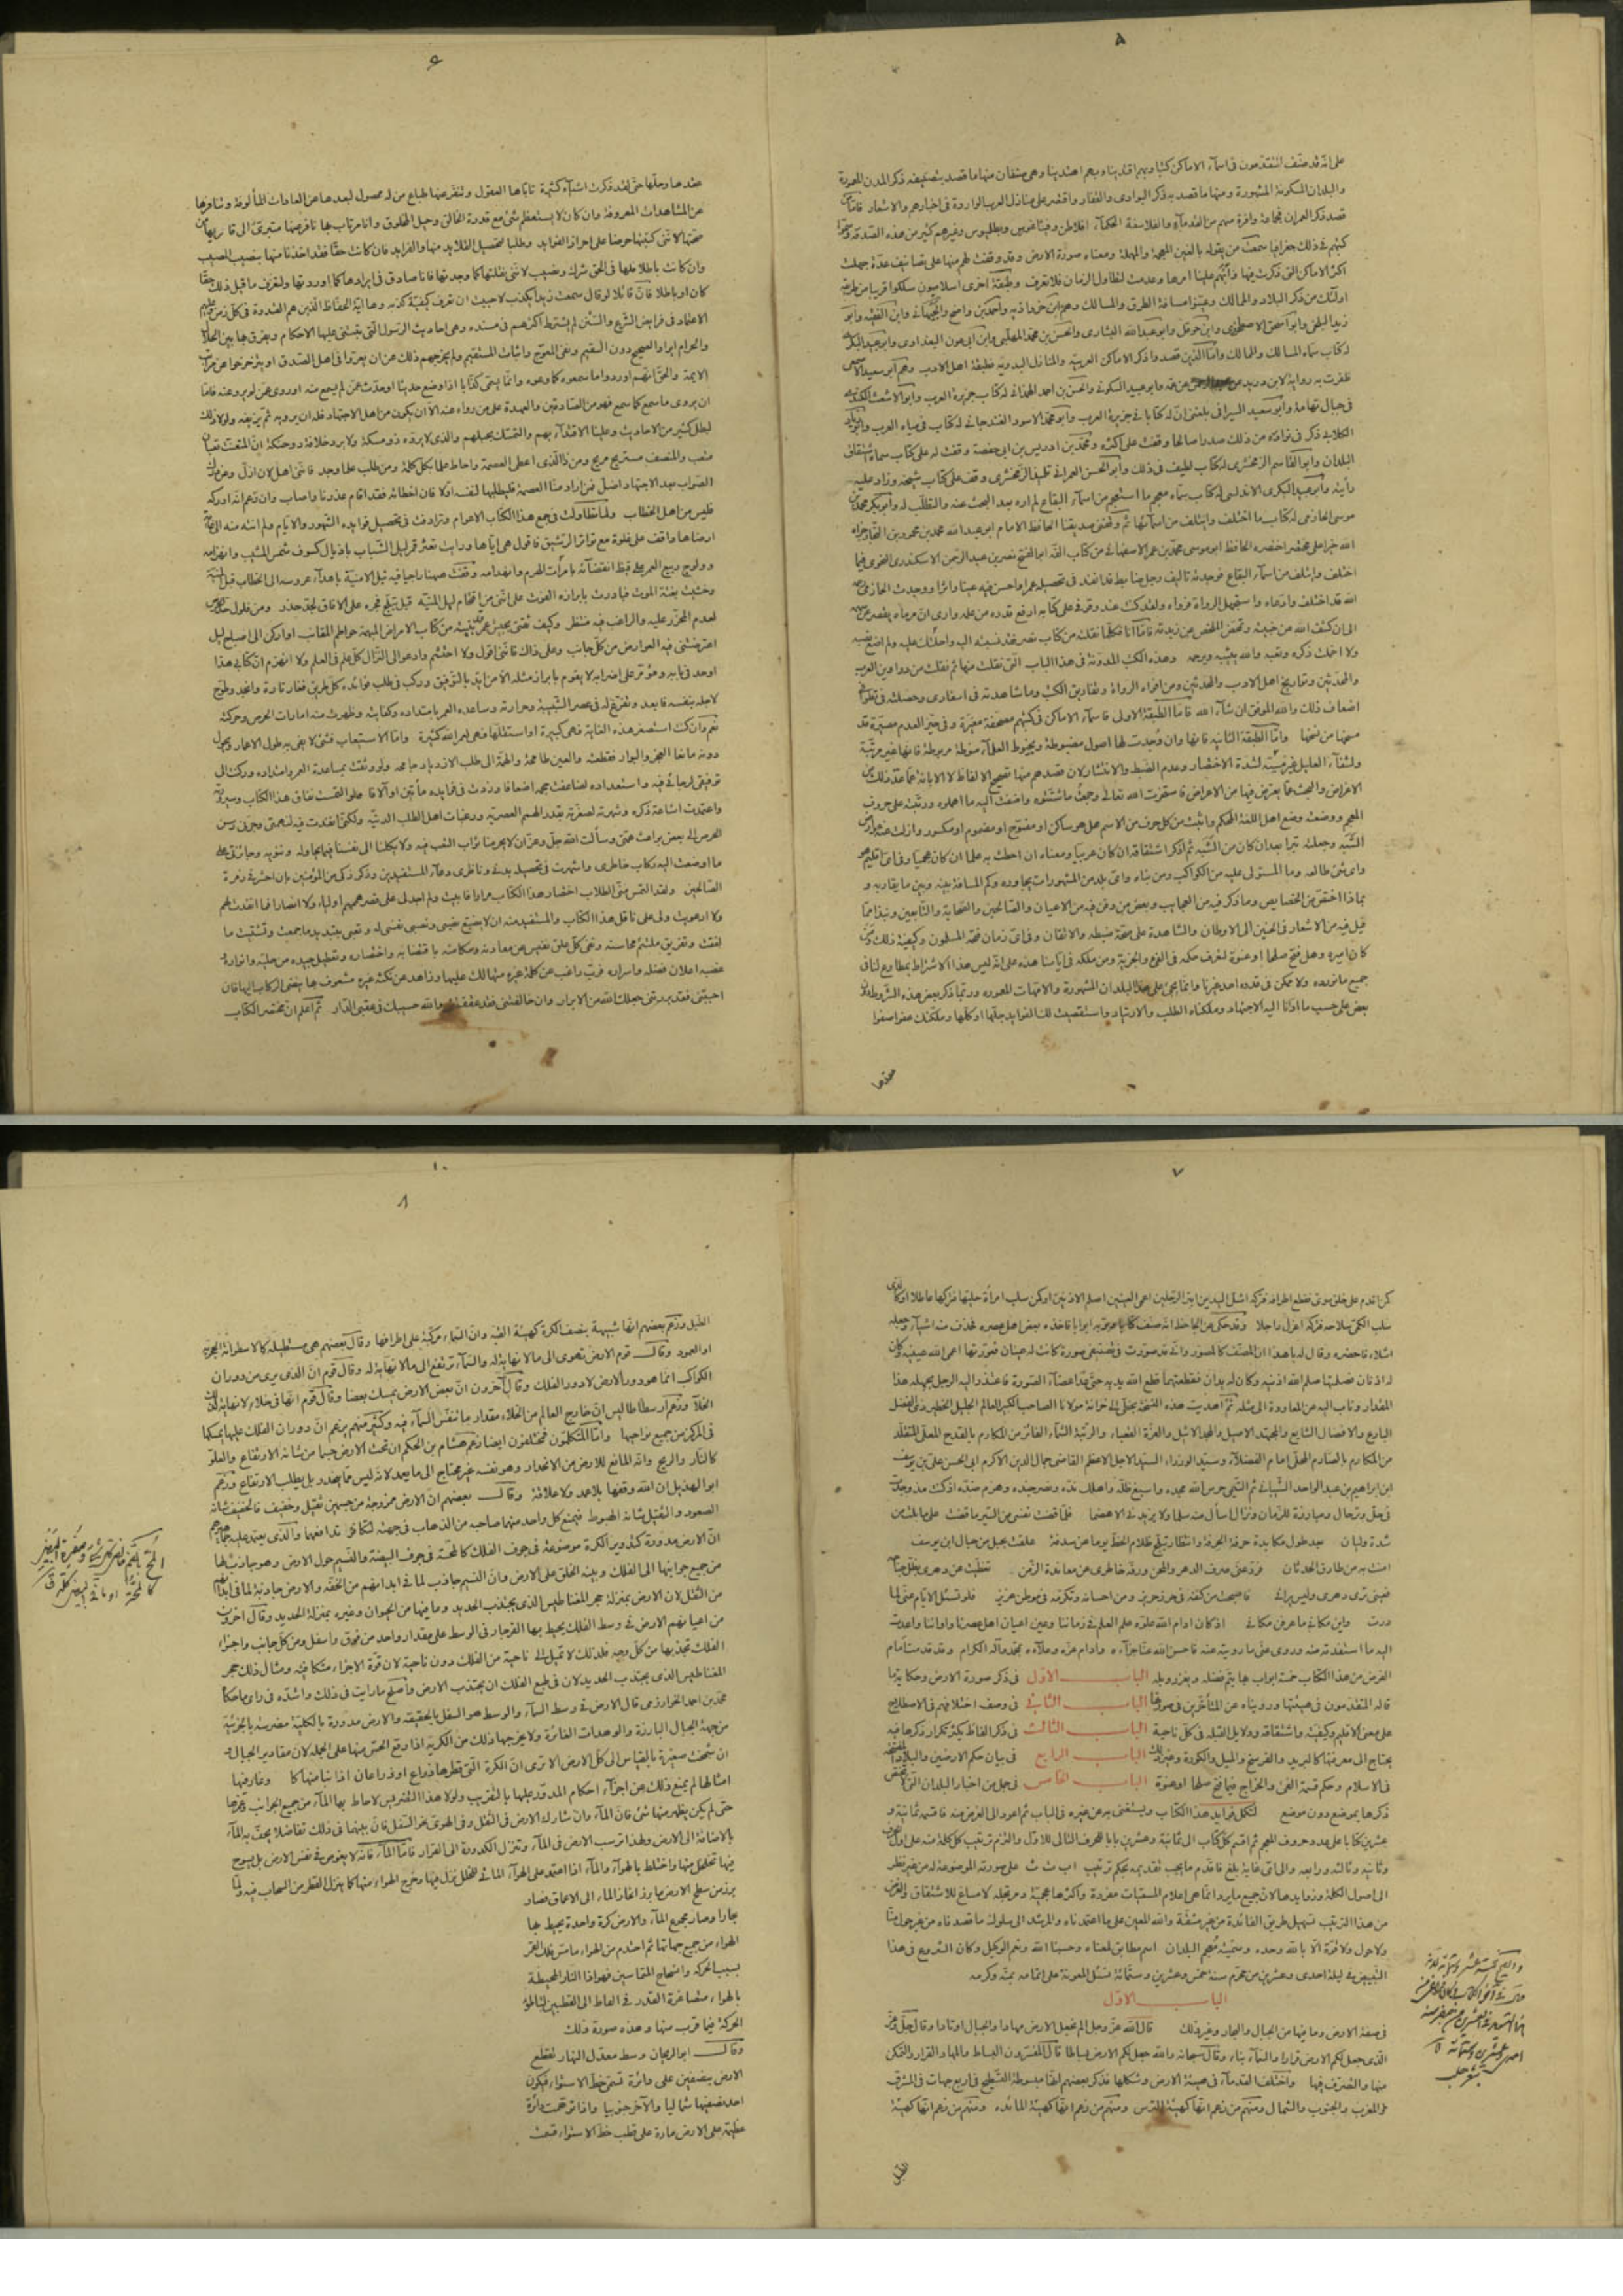 على انه قد صنف المتقدمون في اسماء الاماكن كتبا وبهم اقتدينا وبهم اهتدينا وهي صنفان منها ما قصد بتصنيفه ذكر المدن المعمورة
والبلدان المسكونة المشهورة ومنها ما قصد به ذكر البوادي والقفار واقتصر على منازل العرب الواردة في اخبارهم والاشعار فاما من
قصد ذكر العمران فجماعة وافرة منهم من القدماء والفلاسفة الحكماء افلاطن وفيثاغورس وبطليموس وغيرهم كثير من هذه الطبقة وسموا
كتبهم في ذلك جغرافيا سمعت من يقوله بالغين المعجمة والمهملة ومعناه صورة الارض وقد وقفت لهم منها على تصانيف عدة جهلت
اكثر الاماكن التي ذكرت فيها وانبهم علينا امرها وعدمت لتطاول الزمان فلا تعرف وطبقة اخرى اسلاميون سلكوا قريبا من طريقة
اولئك من ذكر البلاد والممالك وعينوا مسافة الطرق والمسالك وهم ابن خرداذبه واحمد بن واضح والجيهاني وابن الفقيه وابو
زيد البلخي وابو اسحق الاصطخري وابن حوقل وابو عبد الله البشاري والحسن بن محمد المهلبي وابن ابي عون البغدادي وابو عبيد البكري
له كتاب سماه المسالك والممالك واما الذين قصدوا ذكر الاماكن العربية والمنازل البدوية فطبقة اهل الادب وهم ابو سعيد الاصمعي
ظفرت به رواية لابن دريد عن عبد الرحمن عن عمه وابو عبيد السكوني والحسن بن احمد الهمداني له كتاب جزيرة العرب وابو الاشعث الكندي
في جبال تهامة وابو سعيد السيرافي بلغني ان له كتابا في جزيرة العرب وابو محمد الاسود الغندجاني له كتاب في مياه العرب وابو زياد
الكلابي ذكر في نوادره من ذلك صدرا صالحا وقفت على اكثره ومحمد بن ادريس بن ابي حفصة وقفت له على كتاب سماه مناهل
البلدان وابو القاسم الزمخشري له كتاب لطيف في ذلك وابو الحسن العمراني تلميذ الزمخشري وقف على كتاب شيخه وزاد عليه
رأيته وابو عبيد البكري الاندلسي له كتاب سماه معجم ما استعجم من اسماء البقاع لم اره بعد البحث عنه والتطلب له وابو بكر محمد بن
موسى الحازمي له كتاب ما اختلف وائتلف من اسمائها ثم وقفني صديقنا الحافظ الامام ابو عبد الله محمد بن محمود بن النجار جزاه
الله خيرا على مختصر اختصره الحافظ ابو موسى محمد بن عمر الاصفهاني من كتاب الفه ابو الفتح نصر بن عبد الرحمن الاسكندري النحوي فيما
اختلف وائتلف من اسماء البقاع فوجدته تاليف رجل ضابط قد انفد في تحصيله عمرا واحسن فيه عينا واثرا ووجدت الحازمي رحمه
الله قد اختلسه وادعاه واستجهل الرواة فرواه ولقد كنت عند وقوفي على كتابه ارفع قدره من علمه وارى ان مرماه يقصر عن سهمه
الى ان كشف الله عن خبيته وتمحض المحض عن زبدته فاما انا فكلما نقلته من كتاب نصر فقد نسبته اليه واحلته عليه ولم اضع نصبه
ولا اخملت ذكره وتعبه والله يثيبه ويرحمه وهذه الكتب المدونة في هذا الباب التي نقلت منها ثم نقلت من دواوين العرب
والمحدثين وتواريخ اهل الادب والمحدثين ومن افواه الرواة وتفاريق الكتب وما شاهدته في اسفاري وحصلته في تطوافي
اضعاف ذلك والله الموفق ان شاء الله فاما الطبقة الاولى فاسماء الاماكن في كتبهم مصحفة مغيرة وفي حيز العدم مصيرة قد
مسخها من نسخها واما الطبقة الثانية فانها وان وجدت لها اصول مضبوطة وبخطوط العلماء منوطة مربوطة فانها غير مرتبة
ولشفاء العليل غير مسببة لشدة الاختصار وعدم الضبط والانتشار لان قصدهم منها تصحيح الالفاظ لا الابانة عما عدا ذلك من
الاغراض والبحث عما يعترض فيها من الاعراض فاستخرت الله تعالى وجمعت ما شتتوه واضفت اليه ما اهملوه ورتبته على حروف
المعجم ووضعته وضع اهل اللغة المحكم وابنت عن كل حرف من الاسم هل هو ساكن او مفتوح او مضموم او مكسور وازلت عنه عوارض
الشبه وجعلته تبرا بعد ان كان من الشبه ثم اذكر اشتقاقه ان كان عربيا ومعناه ان احطت به علما ان كان عجميا وفي اي اقليم هو
واي شيء طالعه وما المستولي عليه من الكواكب ومن بناه واي بلد من المشهورات يجاوره وكم المسافة بينه وبين ما يقاربه و
بماذا اختص من الخصايص وما ذكر فيه من العجايب وبعض من دفن فيه من الاعيان والصالحين والصحابة والتابعين ونبذا مما
قيل فيه من الاشعار في الحنين الى الاوطان والشاهدة على صحة ضبطه والاتقان وفي اي زمان فتحه المسلمون وكيفية ذلك ومن
كان اميره وهل فتح صلحا او عنوة لتعرف حكمه في الفيء والجزية ومن ملكه في ايامنا هذه على انه ليس هذا الاشتراط بمطاوع لنا في
جميع ما نورده ولا ممكن في قدرة احد غيرنا وانما يجيء على هذا البلدان المشهورة والامهات المعمورة وربما ذكر بعض هذه الشروط دون
بعض على حسب ما ادانا اليه الاجتهاد وملكناه الطلب والارتياد واستقصيت لك الفوايد جلها او كلها وملكتك عفوا صفوا
عقدها وحلها حتى لقد ذكرت اشياء كثيرة تاباها العقول وتنفر عنها طباع من له محصول لبعدها عن العادات المألوفة وتنافرها
عن المشاهدات المعروفة وان كان لا يستعظم شيء مع قدرة الخالق وحيل المخلوق وانا مرتاب بها نافر عنها متبرئ الى قاريها من
صحتها لانني كتبتها حرصا على احراز الفوايد وطلبا لتحصيل القلايد منها والفرايد فان كانت حقا فقد اخذنا منها بنصيب المصيب
وان كانت باطلا فلها في الحق شرك ونصيب لانني نقلتها كما وجدتها فانا صادق في ايرادها كما اوردتها ولتعرف ما قيل في ذلك حقا
كان او باطلا فان قائلا لو قال سمعت زيدا يكذب لاحببت ان تعرف كيفية كذبه وها اية الحفاظ الذين هم القدوة في كل زمن وعليهم
الاعتماد في فرايض الشرع والسنن لم يشترط اكثرهم في مسنده وهي احاديث الرسول التي يبتنى عليها الاحكام ويفرق بها بين الحلال
والحرام ايراد الصحيح دون السقيم ونفي المعوج واثبات المستقيم ولم يخرجهم ذلك عن ان يعتدوا في اهل الصدق او يتزحزحوا عن مراتب
الايمة والحق انهم اوردوا ما سمعوه كما وعوه وانما يسمى كذابا اذا وضع حديثا او حدث عمن لم يسمع منه او روى عمن لم يرو عنه فاما
ان يروى ما سمع كما سمع فهو من الصادقين والعهدة على من رواه عنه الا ان يكون من اهل الاجتهاد فله ان يرويه ثم يزيفه ولولا ذلك
لبطل كثير من الاحاديث وعلينا الاقتداء بهم والتمسك بحبلهم والذي لا يرده ذو مسكة ولا يرد خلافه ذو حنكة ان المتعنت تعبان
متعب والمنصف مستريح مريح ومن ذا الذي اعطي العصمة واحاط علما بكل كلمة ومن طلب علما وجد فانني اهل لان ازل وعن درك
الصواب بعد الاجتهاد اضل فمن اراد منا العصمة فليطلبها لنفسه اولا فان اخطأته فقد اقام عذرنا واصاب وان زعم انه ادركه
فليس من اهل الخطاب ولما تطاولت في جمع هذا الكتاب الاعوام وترادفت في تحصيل فوايده الشهور والايام ولم انته منه الى غاية
ارضاها واقف على غلوة مع تواتر الرشق فاقول هي اياها ورايت تعثر قمر ليل الشباب باذيال كسوف شمس المشيب وانهزامه
وولوج ربيع العمر على قيظ انقضائه بامارات الهرم وانهدامه وقفت ههنا راجيا فيه نيل الامنية باهداء عروسه الى الخطاب قبل المنية
وخشيت بغتة الموت فبادرت بابرازه الفوت على انني من اقتحام ليل المنية قبل تبلج فجره على الافاق لجد حذر ومن فلول حد الحرص
لعدم المحرض عليه والراغب فيه منتظر وكيف ثقتي بجيش عمر قد بيته من كتائب الامراض المبهمة حواطم المقانب او اركن الى اصباح ليل
اعترضتني فيه العوارض من كل جانب وعلى ذاك فانني اقول ولا احتشم وادعو الى النزال كل علم في العلم ولا انهزم ان كتابي هذا
اوحد في بابه ومؤمر على اضرابه لا يقوم بابراز مثله الا من ايد بالتوفيق وركب في طلب فوائده كل طريق فغار تارة وانجد وطوح
لاجله بنفسه فابعد وتفرغ له في عصر الشبيبة وحرارته وساعده العمر بامتداده وكفايته وظهرت منه امارات الحرص وحركته
نعم وان كنت استصغر هذه الغاية فهي كبيرة او استقلها فهي لعمر الله كثيرة واما الاستيعاب فشيء لا يفي به طول الاعمار ويحول
دونه مانعا العجز والبوار فقطعته والعين طامحة والهمة الى طلب الازدياد جامحة ولو وثقت بمساعدة العمر وامتداده وركنت الى
توفيقي لرجائي فيه واستعداده لضاعفت حجمه اضعافا وزدت في فوايده مائتين او آلافا ولو التمست نفاق هذا الكتاب وسيرورته
واعتمدت اشاعة ذكره وشهرته لصغرته بقدر الهمم العصرية ورغبات اهل الطلب الدنية ولكني انقدت فيه لنهمتي وجر بي رسن
الحرص الى بعض بواعث همتي وسألت الله جل وعز ان لا يحرمنا ثواب التعب فيه ولا يكلنا الى نفسنا فيما نحاوله وننويه وجائزتي على
ما اوضعت اليه ركاب خاطري واسهرت في تحصيله بدني وناظري دعاء المستفيدين وذكر زكي من المؤمنين بان احشر في زمرة
الصالحين ولقد التمس مني الطلاب اختصار هذا الكتاب مرارا فابيت ولم اجد لي على قصر هممهم اولياء ولا انصارا فما انقدت لهم
ولا ارعويت ولي على ناقل هذا الكتاب والمستفيد منه ان لا يضيع نصبي ونصب نفسي له وتعبي بتبديد ما جمعت وتشتيت ما
لفقت وتفريق ملتئم محاسنه ونفي كل علق نفيس عن معادنه ومكامنه باقتضابه واختصاره وتعطيل جيده من حليه وانواره و
غصبه اعلان فضله واسراره فرب راغب عن كلمة غيره متهالك عليها وزاهد عن نكتة غيره مشعوف بها ينضي الركاب اليها فان
اجبتني فقد بررتني جعلك الله من الابرار وان خالفتني فقد عققتني والله حسيبك في عقبى الدار ثم اعلم ان مختصر الكتاب
كمن اقدم على خلق سوي فقطع اطرافه فتركه اشل اليدين ابتر الرجلين اعمى العينين اصلم الاذنين او كمن سلب امرأة حليها فتركها عاطلا او كالذي
سلب الكمي سلاحه فتركه اعزل راجلا وقد حكي عن الجاحظ انه صنف كتابا وبوبه ابوابا فاخذه بعض اهل عصره فحذف منه اشياء وجعله
اشلاء فاحضره وقال له يا هذا ان المصنف كالمصور واني قد صورت في تصنيفي صورة كانت لها عينان فعورتها اعمى الله عينيك وكان
له اذنان فصلمتها صلم الله اذنيه وكان له يدان فقطعتهما قطع الله يديه حتى عد اعضاء الصورة فاعتذر اليه الرجل بجهله هذا
المقدار وتاب اليه عن المعاودة الى مثله ثم اهديت هذه النسخة بخطي الى خزانة مولانا الصاحب الكبير العالم الجليل الخطير ذي الفضل
البارع والافضال الشايع والمحتد الاصيل والمجد الاثيل والعزة القعساء والرتبة الشماء الفائز من المكارم بالقدح المعلى المتقلد
من المكارم بالصارم المحلى امام الفضلاء وسيد الوزراء السيد الاجل الاعظم القاضي جمال الدين الاكرم ابي الحسن علي بن يوسف
ابن ابراهيم بن عبد الواحد الشيباني ثم التيمي حرس الله مجده واسبغ ظله واهلك نده ونصر جنده وهزم ضده اذ كنت منذ وجدت
في حل وترحال ومبارزة للزمان ونزال اسأل منه سلما ولا يزيدني الا هضما فلما قضت نفسي من السير ما قضت على ما بلغت من
شدة وليان بعد طول مكابدة حرفة الحرفة وانتظار تبلج ظلام الحظ يوما عن سدفه علقت بحبل من حبال ابن يوسف
امنت به من طارق الحدثان فرد عني صرف الدهر والمحن ورفه خاطري عن معاندة الزمن تغطيت عن دهري بظل جناحه
فعيني ترى دهري وليس يراني فاصبحت من كنفه في حرز حريز ومن احسانه وتكرمه في موطن عزيز فلو تسأل الايام عني لما
درت واين مكاني ما عرفن مكاني اذ كان ادام الله علوه علم العلم في زماننا وعين اعيان اهل عصرنا واواننا واعدت
اليه ما استفدته منه وروى عني ما رويته عنه فاحسن الله عنا جزاءه وادام عزه وعلاءه بمحمد وآله الكرام وقد قدمت امام
الغرض من هذا الكتاب خمسة ابواب بها يتم فضله ويغزر وبله الباب الاول في ذكر صورة الارض وحكاية ما
قاله المتقدمون في هيئتها وروينا عن المتأخرين في صورتها الباب الثاني في وصف اختلافهم في الاصطلاح
على معنى الاقليم وكيفيته واشتقاقه ودلايل القبلة في كل ناحية الباب الثالث في ذكر الفاظ يكثر تكرار ذكرها فيه
يحتاج الى معرفتها كالبريد والفرسخ والميل والكورة وغير ذلك الباب الرابع في بيان حكم الارضين والبلاد المفتتحة
في الاسلام وحكم قسمة الفيء والخراج فيما فتح صلحا او عنوة الباب الخامس في جمل من اخبار البلدان التي لا يختص
ذكرها بموضع دون موضع لتكمل فوايد هذا الكتاب ويستغنى به عن غيره في الباب ثم اعود الى الغرض منه فاقسمه ثمانية و
عشرين كتابا على عدد حروف المعجم ثم اقسم كل كتاب الى ثمانية وعشرين بابا للحرف الثاني للاول والتزم ترتيب كل كلمة منه على اول الحرف
وثانيه وثالثه ورابعه والى اي غاية بلغ فاقدم ما يجب تقديمه بحكم ترتيب ا ب ت ث على صورته الموضوعة له من غير نظر
الى اصول الكلمة وزوايدها لان جميع ما يرد انما هي اعلام لمسميات مفردة واكثرها عجمية ومرتجلة لا مساغ للاشتقاق والغرض
من هذا الترتيب تسهيل طريق الفائدة من غير مشقة والله المعين على ما اعتمدناه والمرشد الى سلوك ما قصدناه من غير حول منا
ولا حول ولا قوة الا بالله وحده وسميته معجم البلدان اسم مطابق لمعناه وحسبنا الله ونعم الوكيل وكان الشروع في هذا
التبييض في ليلة احدى وعشرين من محرم سنة خمس وعشرين وستمائة فنسئل المعونة على اتمامه بمنه وكرمه
الباب الاول
في صفة الارض وما فيها من الجبال والبحار وغير ذلك قال الله عز وجل الم نجعل الارض مهادا والجبال اوتادا وقال جل وعز
الذي جعل لكم الارض قرارا والسماء بناء وقال سبحانه والله جعل لكم الارض بساطا قال المفسرون البساط والمهاد القرار والتمكن
منها والتصرف فيها واختلف القدماء في هيئة الارض وشكلها فذكر بعضهم انها مبسوطة التسطيح في اربع جهات في المشرق
والمغرب والجنوب والشمال ومنهم من زعم انها كهيئة الترس ومنهم من زعم انها كهيئة المائدة ومنهم من زعم انها كهيئة
الطبل
الطبل وزعم بعضهم انها شبيهة بنصف الكرة كهيئة القبة وان السماء مركبة على اطرافها وقال بعضهم هي مستطيلة كالاسطوانة الحجرية
او العمود وقال قوم الارض تهوي الى ما لا نهاية له والسماء ترتفع الى ما لا نهاية له وقال قوم ان الذي يرى من دوران
الكواكب انما هو دور الارض لا دور الفلك وقال آخرون ان بعض الارض يمسك بعضا وقال قوم انها في خلاء لا نهاية لذلك
الخلاء وزعم ارسطاطاليس ان خارج العالم من الخلاء مقدار ما تنفس السماء فيه وكثير منهم يزعم ان دوران الفلك عليها يمسكها
في المركز من جميع نواحيها واما المتكلمون فمختلفون ايضا زعم هشام بن الحكم ان تحت الارض جسما من شانه الارتفاع والعلو
كالنار والريح وانه المانع للارض من الانحدار وهو نفسه غير محتاج الى ما يعمده لانه ليس مما ينحدر بل يطلب الارتفاع وزعم
ابو الهذيل ان الله وقفها بلا عمد ولا علاقة وقال بعضهم ان الارض ممزوجة من جسمين ثقيل وخفيف فالخفيف شأنه
الصعود والثقيل شأنه الهبوط فيمنع كل واحد منهما صاحبه من الذهاب في جهته لتكافئ تدافعهما والذي يعتمد عليه جماهيرهم
ان الارض مدورة كتدوير الكرة موضوعة في جوف الفلك كالمحة في جوف البيضة والنسيم حول الارض وهو جاذب لها
من جميع جوانبها الى الفلك وبنية الخلق على الارض وان النسيم جاذب لما في ابدانهم من الخفة والارض جاذبة لما في ابدانهم
من الثقل لان الارض بمنزلة حجر المغناطيس الذي يجتذب الحديد وما فيها من الحيوان وغيره بمنزلة الحديد وقال آخرون
من اعيانهم الارض في وسط الفلك يحيط بها الفرجار في الوسط على مقدار واحد من فوق واسفل ومن كل جانب واجزاء
الفلك تجذبها من كل وجه فلذلك لا تميل الى ناحية من الفلك دون ناحية لان قوة الاجزاء متكافية ومثال ذلك حجر
المغناطيس الذي يجتذب الحديد لان في طبع الفلك ان يجتذب الارض واصلح ما رايت في ذلك واسده في رايي ما حكاه
محمد بن احمد الخوارزمي قال الارض في وسط السماء والوسط هو السفل بالحقيقة والارض مدورة بالكلية مضرسة بالجزئية
من جهة الجبال البارزة والوهدات الغائرة ولا يخرجها ذلك من الكرية اذا وقع الحس منها على الجملة لان مقادير الجبال و
ان شمخت صغيرة بالقياس الى كل الارض الا ترى ان الكرة التي قطرها ذراع او ذراعان اذا نتا منها كا وغار فيها
امثالها لم يمنع ذلك من اجراء احكام المدور عليها بالتقريب ولولا هذا التضريس لاحاط بها الماء من جميع الجوانب وغمرها
حتى لم يكن يظهر منها شيء فان الماء وان شارك الارض في الثقل وفي الهوي نحو السفل فان بينهما في ذلك تفاضلا يخف به الماء
بالاضافة الى الارض ولهذا ترسب الارض في الماء وتنزل الكدورة الى القرار فاما الماء فانه لا يغوص في نفس الارض بل يسوخ
فيما تخلخل منها واختلط بالهواء والماء اذا اعتمد على الهواء المائي للتخلخل نزل فيها وخرج الهواء منها كما ينزل القطر من السحاب فيه ولما
برز من سطح الارض ما برز انحاز الماء الى الاعماق فصار
بحارا وصار مجموع الماء والارض كرة واحدة يحيط بها
الهواء من جميع جهاتها ثم احتدم من الهواء ما مس فلك القمر
بسبب الحركة وانسحاج المتماسين فهو اذا النار المحيطة
بالهواء متصاغرة القدر في الغاط الى القطبين لتباطؤ
الحركة فيما قرب منها وهذه صورة ذلك
وقال ابو الريحان وسط معدل النهار يقطع
الارض بنصفين على دائرة تسمى خط الاستواء فيكون
احد نصفيها شماليا والآخر جنوبيا واذا توهمت دائرة
عظيمة على الارض مارة على قطب خط الاستواء قسمت